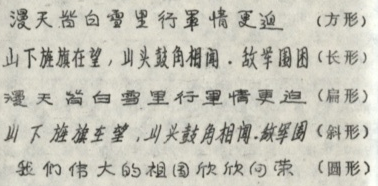 漫天皆白雪里行軍情更迫（方形）
山下旌旗在望，山头鼓角相闻．敌军围困（长形）
漫天皆白雪里行軍情更迫（扁形）
山下旌旗在望，山头鼓角相闻．敌军围（斜形）
我们伟大的祖国欣欣向荣（圆形）